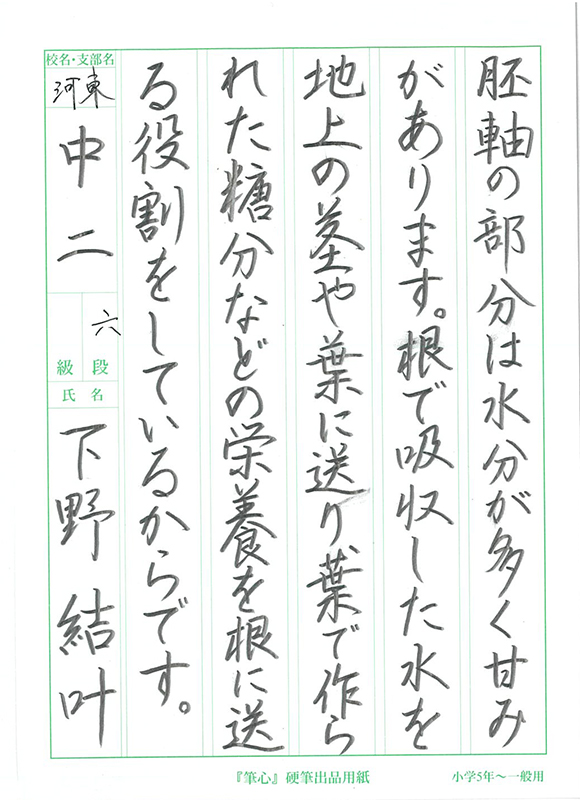 胚軸の部分は水分が多く甘み
があります。根で吸収した水を
地上の茎や葉に送り葉で作ら
れた糖分などの栄養を根に送
る役割をしているからです。
校名・支部名
河東
中二
六
級 段
氏 名
下野結叶
『筆心』硬筆出品用紙
小学5年～一般用